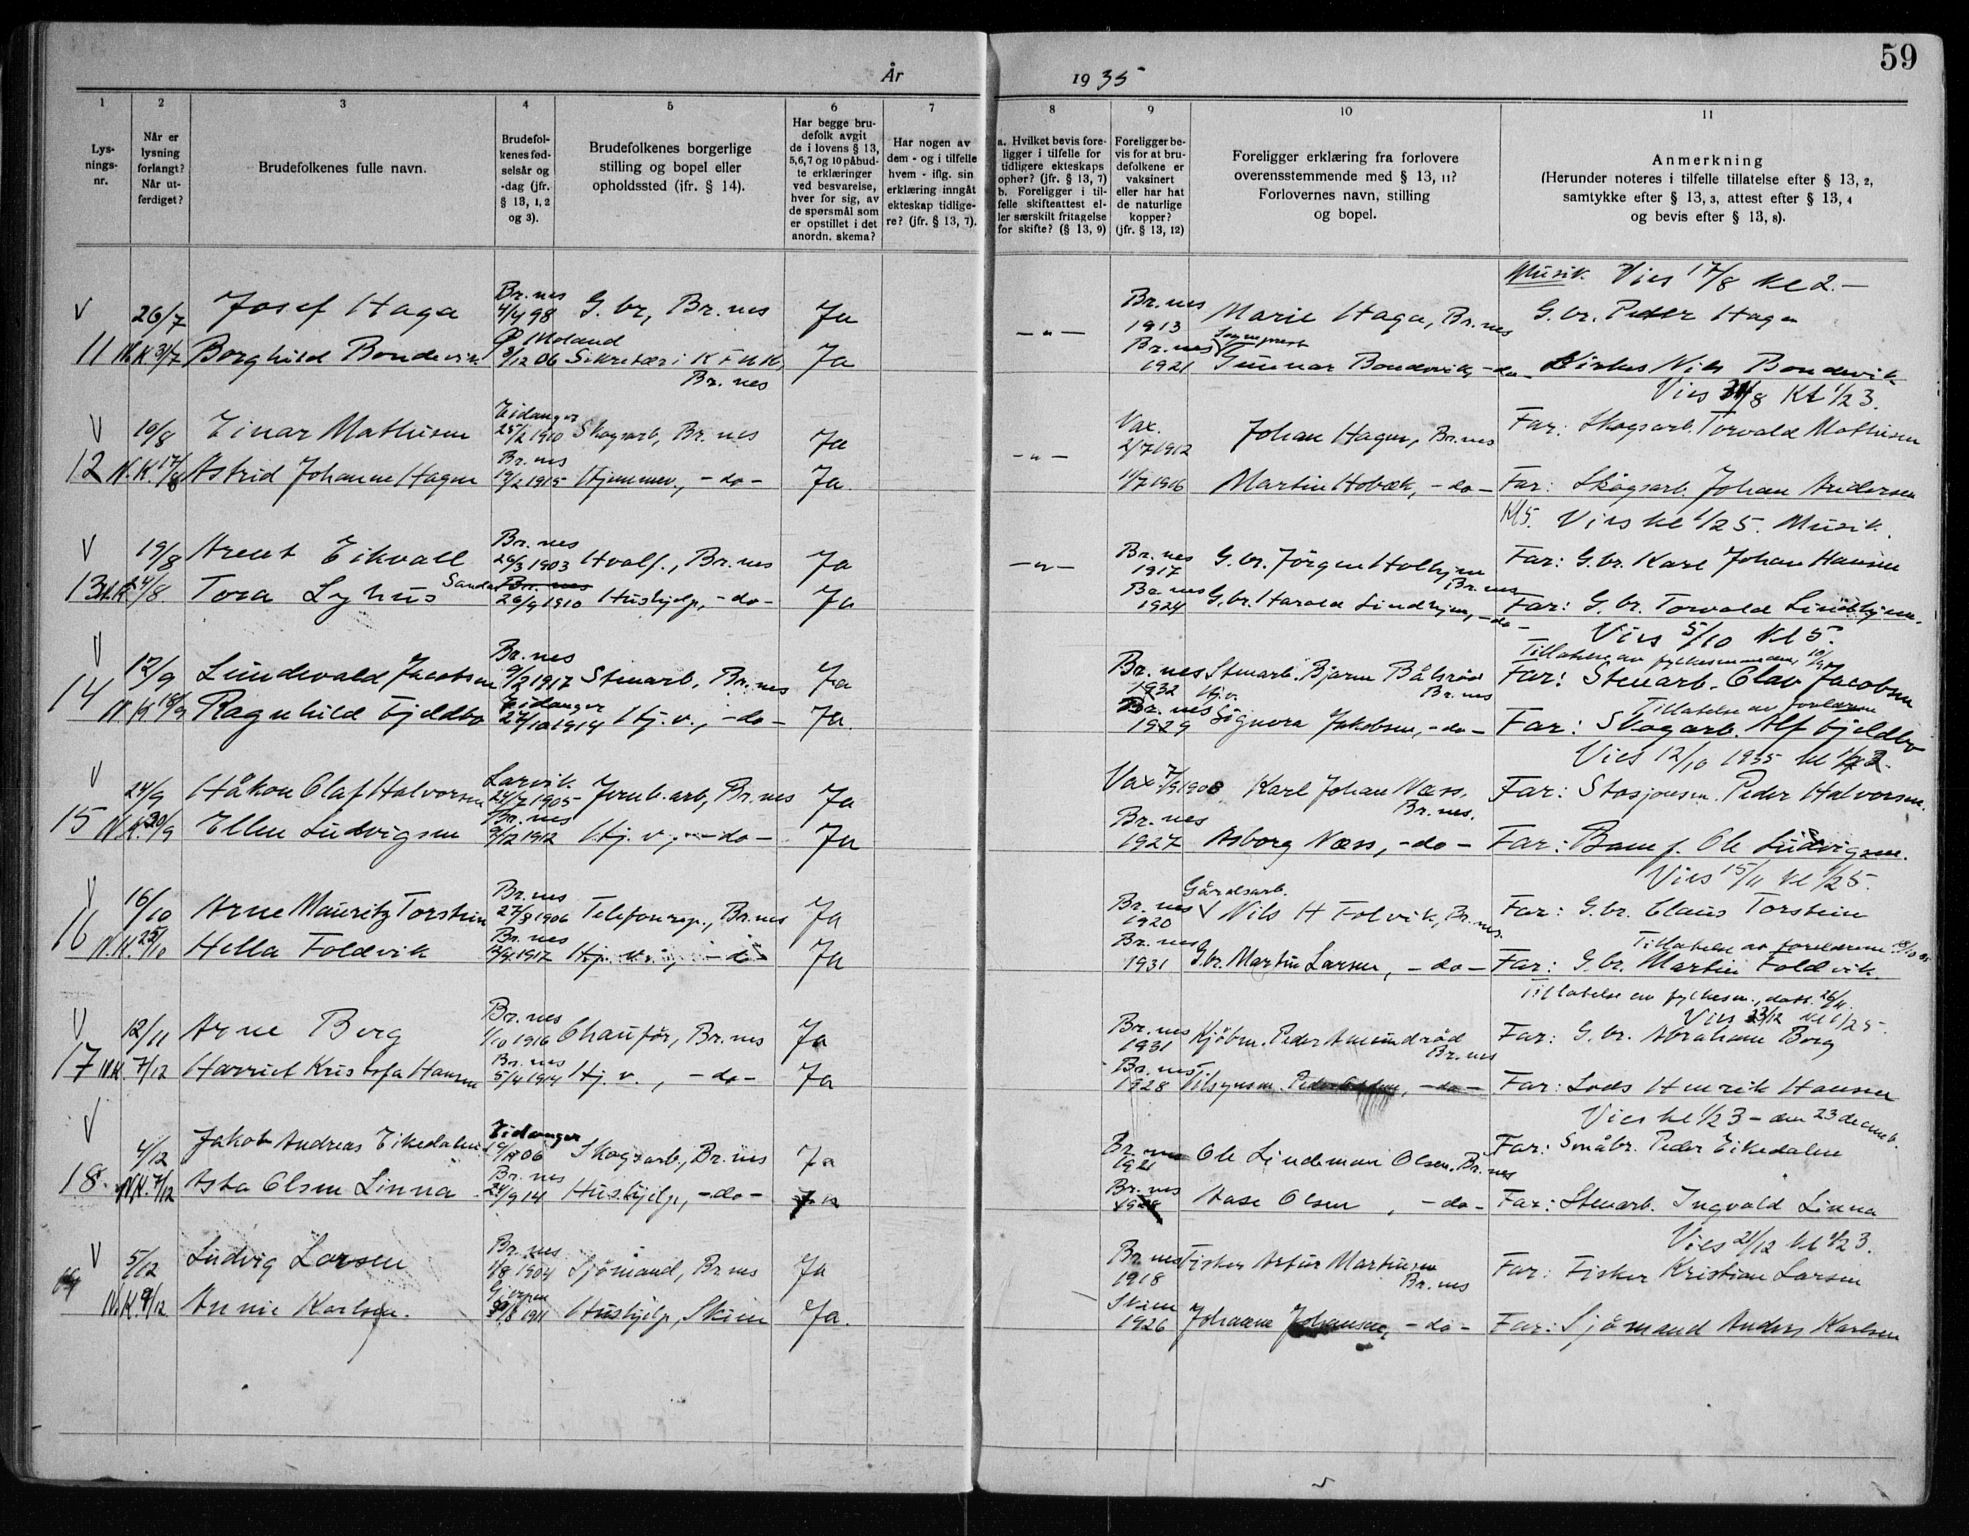 59
År 1935
1
2
3
4
5
6
7
8
9
10
11
Lys-
nings-
nr.
Når er
lysning
forlangt?
Når ut-
ferdiget?
Brudefolkenes fulle navn.
Brudefol-
kenes fød-
selsår og
-dag (jfr.
§ 13, 1, 2
og 3).
Brudefolkenes borgerlige
stilling og bopel eller
opholdssted (jfr. § 14).
Har begge bru-
defolk avgit
de i lovens § 13,
5,6,7 og 10 påbud-
te erklæringer
ved besvarelse,
hver for sig, av
de spørsmål som
er opstillet i det
anordn. skema?
Har nogen av
dem - og i tilfelle
hvem - iflg. sin
erklæring inngått
ekteskap tidlige-
re? (jfr. § 13, 7).
a. Hvilket bevis fore-
ligger i tilfelle for
tidligere ekteskaps
ophør? (jfr. § 13, 7)
b. Foreligger i til-
felle skifteattest el-
ler særskilt fritagelse
for skifte? (§ 13, 9)
Foreligger be-
vis for at bru-
defolkene er
vaksinert
eller har hat
de naturlige
kopper?
(jfr. § 13, 12)
Foreligger erklæring fra forlovere
overensstemmende med § 13, 11?
Forlovernes navn, stilling
og bopel.
Anmerkning
(Herunder noteres i tilfelle tillatelse efter § 13, 2,
samtykke efter § 13, 3, attest efter § 13, 4
og bevis efter § 13, 8).
Musik. Vies 17/8 kl 2.-
V 26/7 Josef Haga Br.nes 4/4 98 G.br, Br.nes Ja -"- Br.nes 1913 Marie Haga, Br.nes G.br. Peder Haga
11 N.K. 31/7 Borghild Bondevik Ø Moland 9/12 06 Sekretær i K F U K, Br.nes Ja Br.nes 1921 Sogneprest Gunnar Bondevik, -do- Nils Bondevik
Vies 31/8 Kl 1/2 3.
V 10/8 Einar Mathisen Eidanger 25/2 1910 Skogsarb, Br.nes Ja -"- Vax. 2/7 1912 Johan Hagen, Br.nes Far: Skogsarb. Torvald Mathisen
12 N.K. 17/8 Astrid Johanne Hagen Br.nes 19/2 1915 Hjemmev., -do- Ja. 11/7 1906 Martin Hobæk, -do- Far: Skogsarb. Johan Andersen
Kl 5. Vies kl 1/2 5. Musik.
V 19/8 Arent Eikvall Br.nes 26/3 1903 Hvalf., Br.nes Ja -"- Br.nes 1917 G.br. Jörgen Holtgen Br.nes Far: G.br. Karl Johan Hansen
13 24/8 Tora Lyhus Sandar Br.nes 26/9 1910 Hushjelp, -do- Ja Br.nes 1924 G.br. Harald Lindhjem, -do- Far: G.br. Torvald Lindhjem.
Vies 5/10 Kl 5.
Tillatelse av fylkesmannen
V 12/9 Lundevald Jacobsen Br.nes 9/2 1917 Stenarb, Br.nes Ja Br.nes 1932 Stenarb. Bjarne Bålsrød Br.nes Far: Stenarb. Olav Jacobsen
Tillatelse av forlorene
14 N.K. 18/9 Ragnhild Gjeldbo Eidanger 27/10 1914 Hj.v., -do- Ja. Br.nes 1929 Hj.v. Signora Jakobsen, -do- Far: Skogarb. Alf Gjeldbo
Vies 12/10 1935 kl
V 24/9 Håkon Olaf Halvorsen Larvik 24/7 1905 Jernb.arb, Br.nes Ja Vax 7/9 1908 Karl Johan Næss, Br.nes. Far: Stasjonsm. Peder Halvorsen.
15 N.K. 30/9 Ellen Ludvigsen Br.nes 9/12 1912 Hj.v., -do- Ja Br.nes 1927 Asborg Næss, -do- Far: Ole Ludvigsen.
Vies 15/11 kl 1/2 5.
V 16/10 Arne Mauritz Torstein Br.nes 27/8 1906 Telefonrep., Br.nes Ja Br.nes 1920 Gårdsarb. Nils H Folvik, Br.nes. Far: G.br. Claus Torstein
Tillatelse av foreldrene
16 N.K. 25/10 Hella Foldvik Br.nes 1917 Hj.v., -do- Ja Br.nes 1931 G.br. Martin Larsen, -do- Far: G.br. Martin Foldvik.
Tillatelse av fylkesm., dat. 26/11.
Vies 23/12 kl 1/2 5.
V 12/11 Arne Berg Br.nes 1/10 1916 Chauför, Br.nes Ja Br.nes 1931 Kjöbm. Peder Amundröd Br.nes Far: G.br. Abraham Berg
17 N.K. 7/12 Harriet Kristofa Hansen Br.nes 5/4 1914 Hj.v., -do- Ja Br.nes 1928 Tilsynsm. Peder -do- Far: Lods Henrik Hansen
Vies kl 1/2 3 - den 23 decemb.
V 4/12 Jakob Andreas Eikedalen Eidanger 06 Skogsarb., Br.nes Ja Br.nes 1921 Ole Lindeman Olsen, Br.nes Far: Småbr. Peder Eikedalen
18. N.K. 7/12 Asta Olsen Linna Br.nes 24/9 14 Hushjelp, -do- Ja Br.nes 1928 Aase Olsen, -do- Far: Stenarb. Ingvald Linna
Vies 21/12 kl 1/2 3.
V 5/12 Ludvig Larsen Br.nes 1/8 1904 Sjömand, Br.nes Ja Br.nes 1918 Fisker Artur Martinsen Br.nes Far: Fisker Kristian Larsen
19 N.K. 9/12 Annie Karlsen. Gjerpen 30/8 1911 Hushjelp, Skien Ja. Skien 1926 Johanne Johansen, -do- Far: Sjömand Anders Karlsen